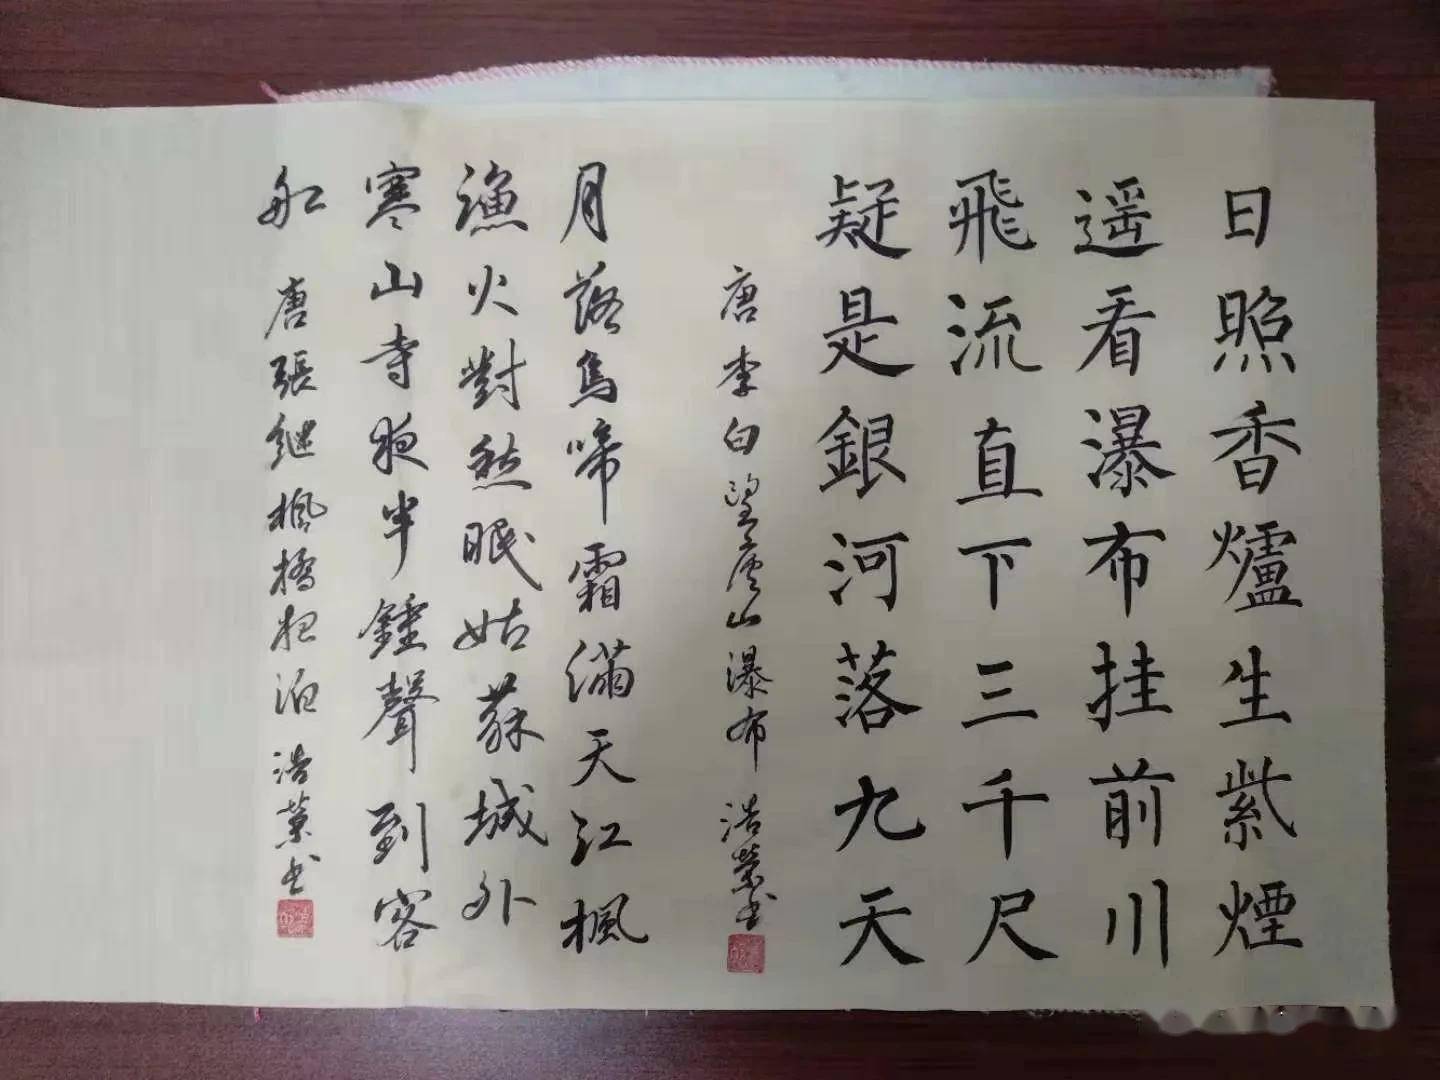 日照香爐生紫煙
遥看瀑布挂前川
飛流直下三千尺
疑是銀河落九天
唐李白望庐山瀑布 浩榮书
月落烏啼霜滿天江楓
漁火對愁眠姑蘇城外
寒山寺夜半鍾聲到客
船 唐張継楓橋夜泊 浩榮书